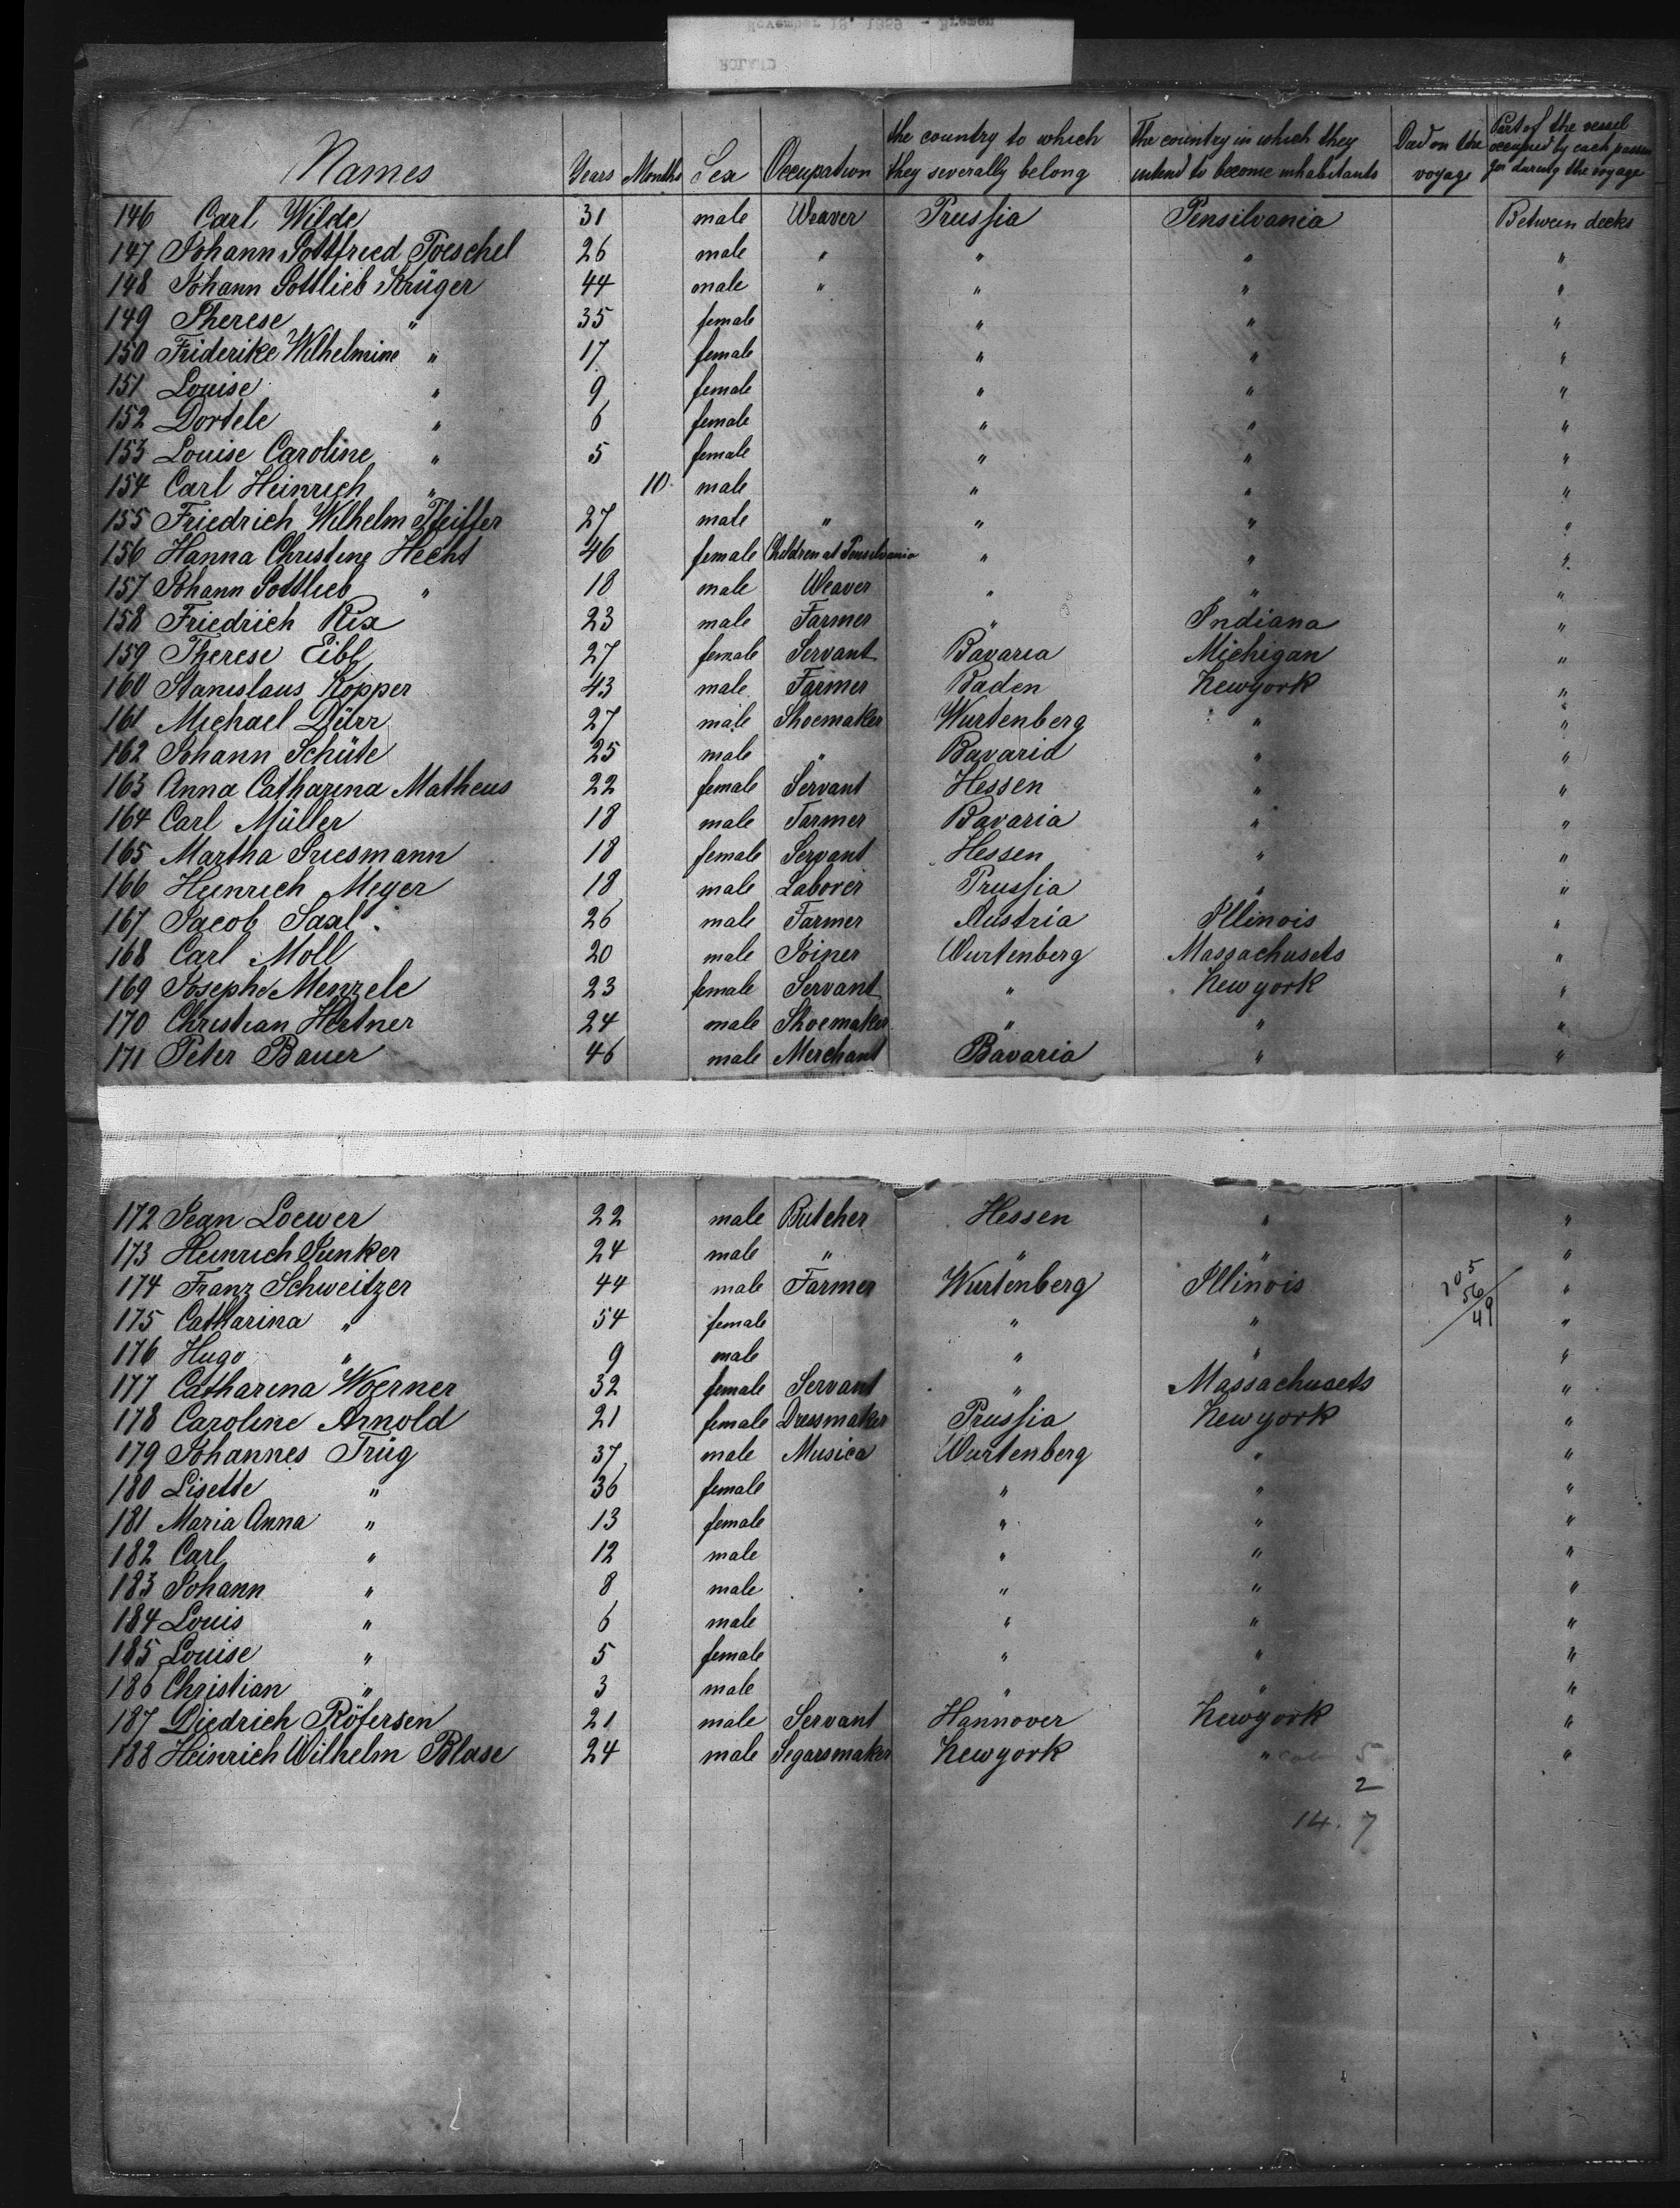 November 18' 1859 - Bremen
Names Years Months Sex Occupation the country to which they severally belong The country in which they intend to become inhabitants Died on the voyage Part of the vessel occupied by each passenger during the voyage
146 Carl Wilde 31 male Weaver Prussia Pensilvania Between decks
147 Johann Gottfried Poeschel 26 male " " " "
148 Johann Gottlieb Krüger 44 male " " " "
149 Therese " 35 female " " "
150 Friderike Wilhelmine " 17 female " " "
151 Louise " 9 female " " "
152 Dortele " 6 female " " "
153 Louise Caroline " 5 female " " "
154 Carl Heinrich " 10 male " " "
155 Friedrich Wilhelm Pfeiffer 27 male " " " "
156 Hanna Christine Hecht 46 female Children at Pensilvania " " "
157 Johann Gottlieb " 18 male Weaver " " "
158 Friedrich Rix 23 male Farmer " Indiana "
159 Therese Eibl 27 female Servant Bavaria Michigan "
160 Stanislaus Kopper 43 male Farmer Baden Newyork "
161 Michael Dürr 27 male Shoemaker Wurtenberg " "
162 Johann Schüte 25 male " Bavaria " "
163 Anna Catharina Matheus 22 female Servant Hessen " "
164 Carl Müller 18 male Farmer Bavaria " "
165 Martha Griesmann 18 female Servant Hessen " "
166 Heinrich Meyer 18 male Laborer Prussia " "
167 Jacob Saxl 26 male Farmer Austria Illinois "
168 Carl Moll 20 male Joiner Wurtenberg Massachusets "
169 Josephe Menzele 23 female Servant " Newyork "
170 Christian Hertner 24 male Shoemaker " " "
171 Peter Bauer 46 male Merchant Bavaria " "
172 Jean Loewer 22 male Butcher Hessen " "
173 Heinrich Junker 24 male " " " "
174 Franz Schweitzer 44 male Farmer Wurtenberg Illinois "
105
56
49
175 Catharina " 54 female " " "
176 Hugo " 9 male " " "
177 Catharina Woerner 32 female Servant " Massachusets "
178 Caroline Arnold 21 female Dressmaker Prussia Newyork "
179 Johannes Trüg 37 male Musica Wurtenberg " "
180 Lisette " 36 female " " "
181 Maria Anna " 13 female " " "
182 Carl " 12 male " " "
183 Johann " 8 male " " "
184 Louis " 6 male " " "
185 Louise " 5 female " " "
186 Christian " 3 male " " "
187 Diedrich Röfersen 21 male Servant Hannover Newyork "
188 Heinrich Wilhelm Blase 24 male Segarsmaker Newyork " "
5
2
14. 7